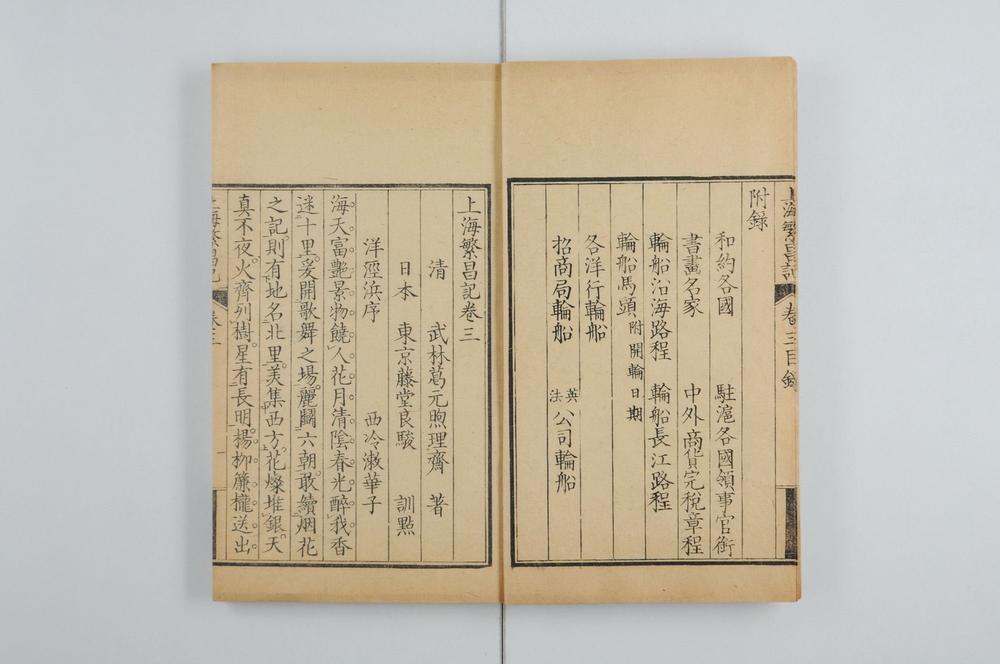 上海繁昌記 卷三目錄
附錄
和約各國 駐滬各國領事官銜
書畫名家 中外商貨完稅章程
輪船沿海路程 輪船長江路程
輪船馬頭 附開輪日期
各洋行輪船
招商局輪船 英法公司輪船
上海繁昌記卷三
清 武林葛元煦理齋 著
日本 東京藤堂良駿 訓點
洋涇浜序 西冷漱華子
海天富艷景物饒人花月清陰春光醉我香
迷十里爰開歌舞之場麗鬬六朝敢續烟花
之記則有地名北里美集西方花燦堆銀天
真不夜火齊列樹星有長明楊柳簾櫳送出
上海繁昌記 卷三 一